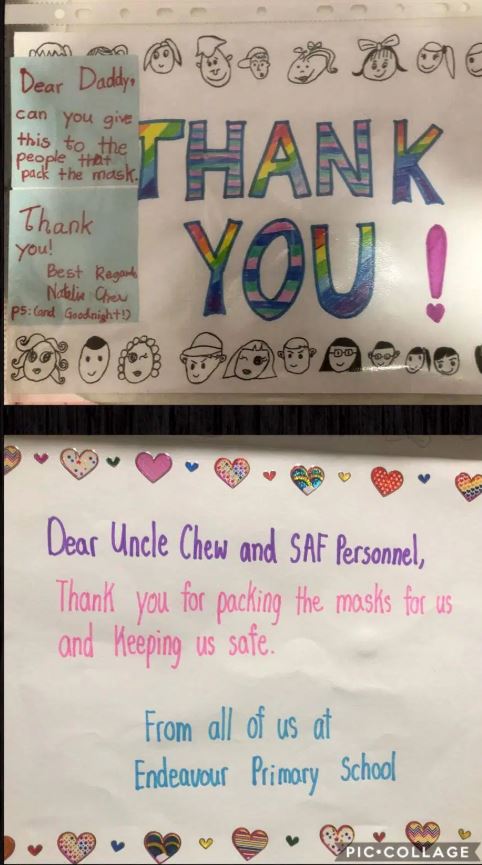 Dear Daddy,
can you give
this to the
people that
pack the mask.
Thank
you!
Best Regards
Natelie Chew
PS:(and Goodnight!)
THANK
YOU!
Dear Uncle Chew and SAF Personnel,
Thank you for packing the masks for us
and Keeping us safe.
From all of us at
Endeavour Primary School
PIC•COLLAGE